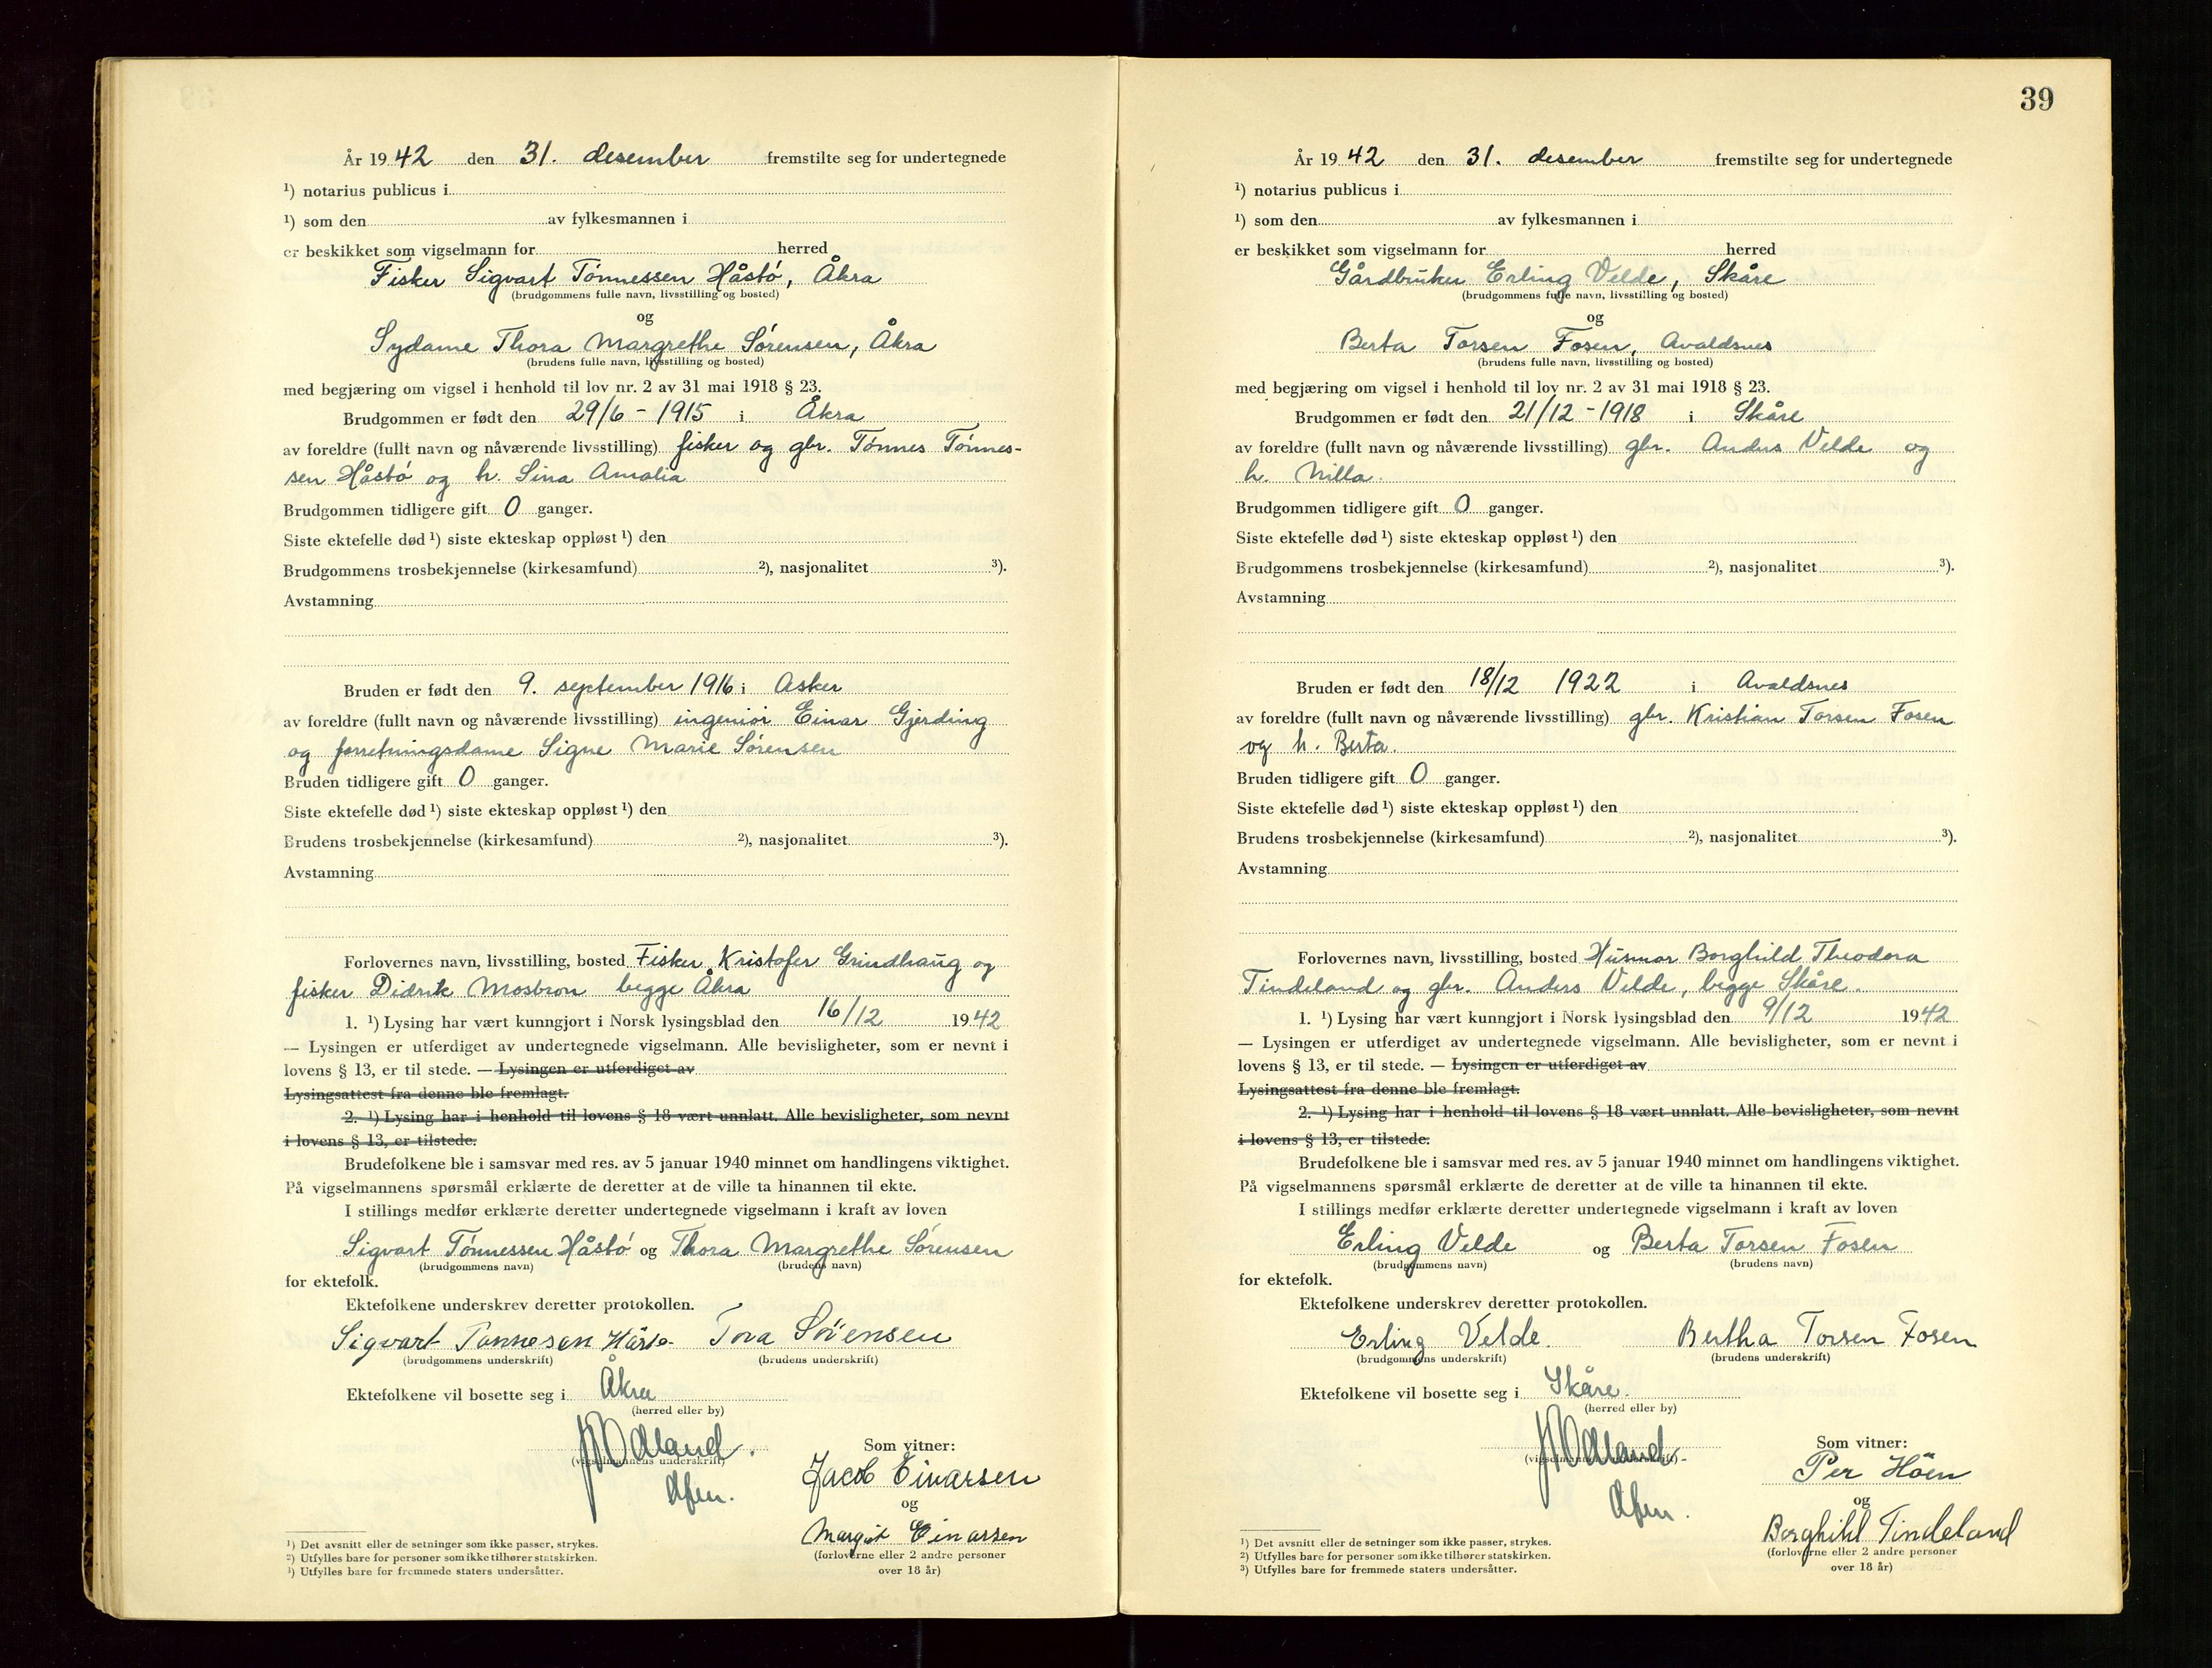 År 1942 den 31. desember fremstilte seg for undertegnede
¹) notarius publicus i
¹) som den av fylkesmannen i
er beskikket som vigselmann for herred
Fisker Sigvart Tønnessen Håstø, Åkra
(brudgommens fulle navn, livsstilling og bosted)
og
Sydame Thora Margrethe Sørensen, Åkra
(brudens fulle navn, livsstilling og bosted)
med begjæring om vigsel i henhold til lov nr. 2 av 31 mai 1918 § 23.
Brudgommen er født den 29/6 - 1915 i Åkra
av foreldre (fullt navn og nåværende livsstilling) fisker og gbr. Tønnes Tønnes-
sen Håstø og h. Sina Amalia
Brudgommen tidligere gift 0 ganger.
Siste ektefelle død ¹) siste ekteskap oppløst ¹) den
Brudgommens trosbekjennelse (kirkesamfund) ²), nasjonalitet ³).
Avstamning
Bruden er født den 9. september 1916 i Asker
av foreldre (fullt navn og nåværende livsstilling) ingeniør Einar Gjerding
og forretningsdame Signe Marie Sørensen
Bruden tidligere gift 0 ganger.
Siste ektefelle død ¹) siste ekteskap oppløst ¹) den
Brudens trosbekjennelse (kirkesamfund) ²), nasjonalitet ³).
Avstamning
Forlovernes navn, livsstilling, bosted Fisker Kristofer Grindhaug og
fisker Didrik Mosbron begge Åkra
1. ¹) Lysing har vært kunngjort i Norsk lysingsblad den 16/12 1942
— Lysingen er utferdiget av undertegnede vigselmann. Alle bevisligheter, som er nevnt i
lovens § 13, er til stede. — Lysingen er utferdiget av
Lysingsattest fra denne ble fremlagt.
2. ¹) Lysing har i henhold til lovens § 18 vært unnlatt. Alle bevisligheter, som nevnt
i lovens § 13, er tilstede.
Brudefolkene ble i samsvar med res. av 5 januar 1940 minnet om handlingens viktighet.
På vigselmannens spørsmål erklærte de deretter at de ville ta hinannen til ekte.
I stillings medfør erklærte deretter undertegnede vigselmann i kraft av loven
Sigvart Tønnessen Håstø og Thora Margrethe Sørensen
(brudgommens navn) (brudens navn)
for ektefolk.
Ektefolkene underskrev deretter protokollen.
Sigvart Tønnesen Håstø Tora Sörensen
(brudgommens underskrift) (brudens underskrift)
Ektefolkene vil bosette seg i Åkra
(herred eller by)
Ådland.
(vigselmannens underskrift)
Som vitner:
Jacob Einarsen
og
Margit Einarsen
(forloverne eller 2 andre personer
over 18 år)
¹) Det avsnitt eller de setninger som ikke passer, strykes.
²) Utfylles bare for personer som ikke tilhører statskirken.
³) Utfylles bare for fremmede staters undersåtter.
39
År 1942 den 31. desember fremstilte seg for undertegnede
¹) notarius publicus i
¹) som den av fylkesmannen i
er beskikket som vigselmann for herred
Gårdbruker Erling Velde, Skåre
(brudgommens fulle navn, livsstilling og bosted)
og
Berta Torsen Fosen, Avaldsnes
(brudens fulle navn, livsstilling og bosted)
med begjæring om vigsel i henhold til lov nr. 2 av 31 mai 1918 § 23.
Brudgommen er født den 21/12 - 1918 i Skåre
av foreldre (fullt navn og nåværende livsstilling) gbr. Anders Velde og
h. Nilla.
Brudgommen tidligere gift 0 ganger.
Siste ektefelle død ¹) siste ekteskap oppløst ¹) den
Brudgommens trosbekjennelse (kirkesamfund) ²), nasjonalitet ³).
Avstamning
Bruden er født den 18/12 1922 i Avaldsnes
av foreldre (fullt navn og nåværende livsstilling) gbr. Kristian Torsen Fosen
og h. Berta.
Bruden tidligere gift 0 ganger.
Siste ektefelle død ¹) siste ekteskap oppløst ¹) den
Brudens trosbekjennelse (kirkesamfund) ²), nasjonalitet ³).
Avstamning
Forlovernes navn, livsstilling, bosted Husmor Borghild Theodora
Tindeland og gbr. Anders Velde, begge Skåre.
1. ¹) Lysing har vært kunngjort i Norsk lysingsblad den 9/12 1942
— Lysingen er utferdiget av undertegnede vigselmann. Alle bevisligheter, som er nevnt i
lovens § 13, er til stede. — Lysingen er utferdiget av
Lysingsattest fra denne ble fremlagt.
2. ¹) Lysing har i henhold til lovens § 18 vært unnlatt. Alle bevisligheter, som nevnt
i lovens § 13, er tilstede.
Brudefolkene ble i samsvar med res. av 5 januar 1940 minnet om handlingens viktighet.
På vigselmannens spørsmål erklærte de deretter at de ville ta hinannen til ekte.
I stillings medfør erklærte deretter undertegnede vigselmann i kraft av loven
Erling Velde og Berta Torsen Fosen
(brudgommens navn) (brudens navn)
for ektefolk.
Ektefolkene underskrev deretter protokollen.
Erling Velde. Bertha Torsen Fosen
(brudgommens underskrift) (brudens underskrift)
Ektefolkene vil bosette seg i Skåre.
(herred eller by)
Ådland
(vigselmannens underskrift)
Som vitner:
Per Höen
og
Borghild Tindeland
(forloverne eller 2 andre personer
over 18 år)
¹) Det avsnitt eller de setninger som ikke passer, strykes.
²) Utfylles bare for personer som ikke tilhører statskirken.
³) Utfylles bare for fremmede staters undersåtter.